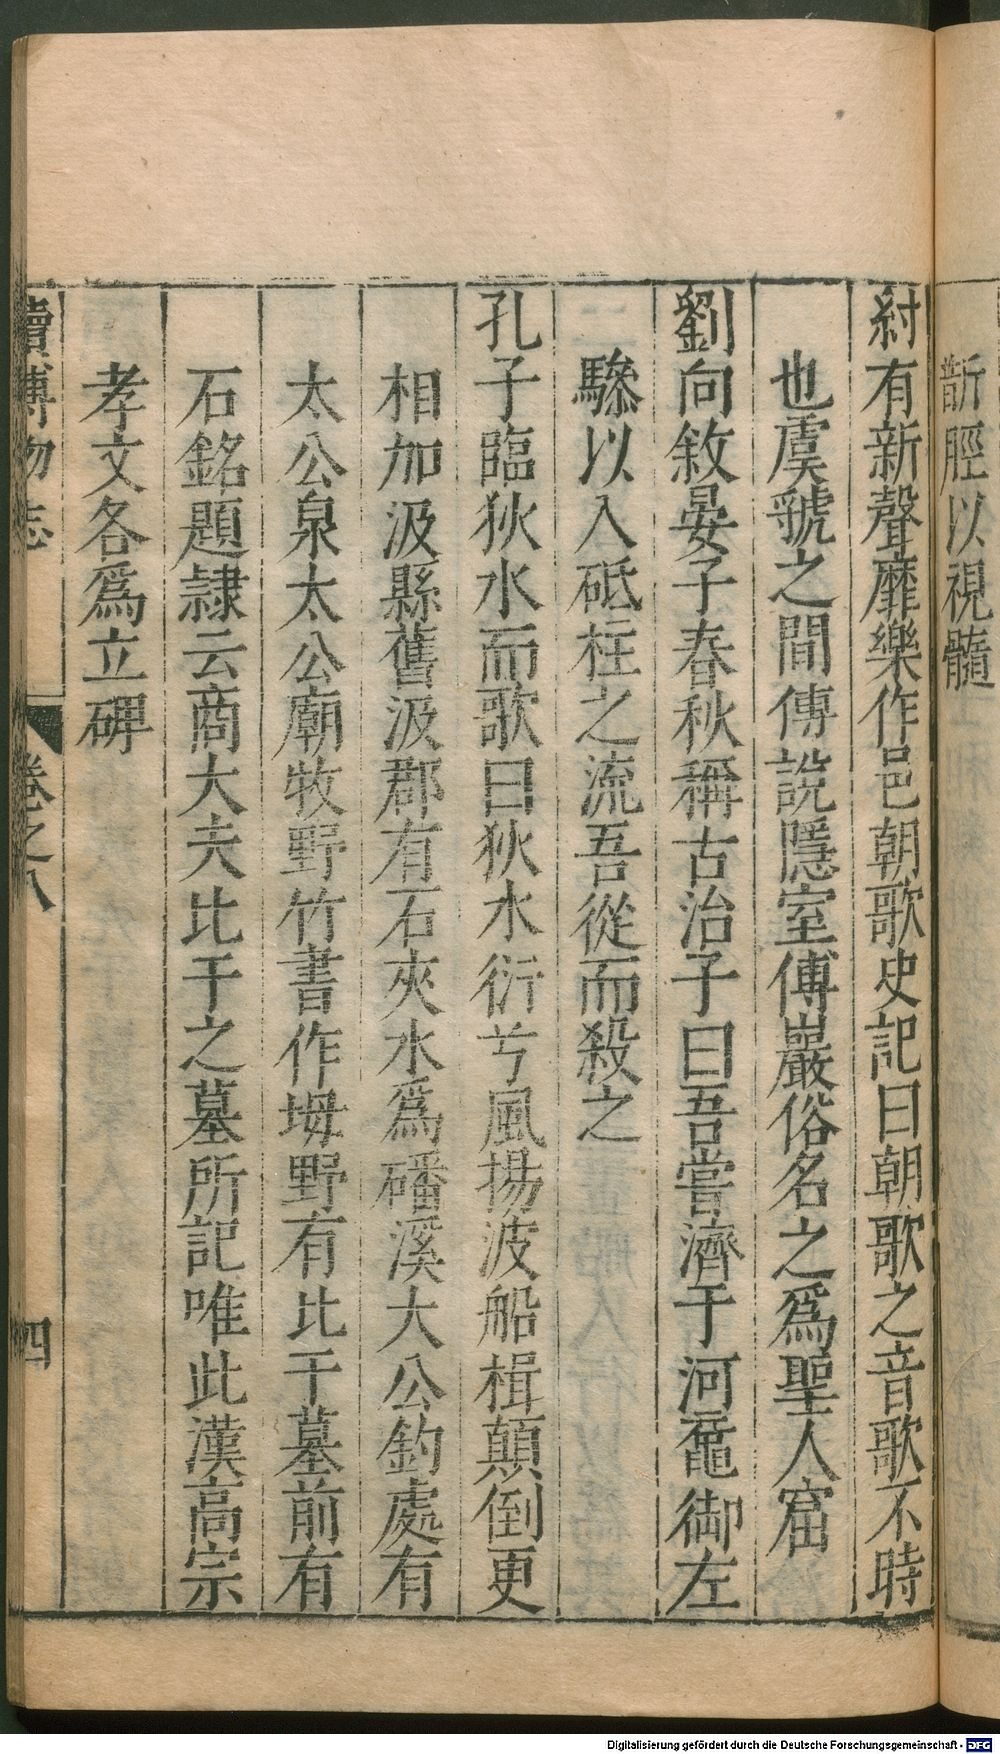 斮脛以視髓
紂有新聲靡樂作邑朝歌史記曰朝歌之音歌不時
也虞虢之間傳說隱室傅巖俗名之爲聖人窟
劉向敘晏子春秋稱古冶子曰吾嘗濟于河黿御左
驂以入砥柱之流吾從而殺之
孔子臨狄水而歌曰狄水衍兮風揚波船楫顛倒更
相加汲縣舊汲郡有石夾水爲磻溪大公釣處有
太公泉太公廟牧野竹書作坶野有比干墓前有
石銘題隷云商大夫比干之墓所記唯此漢高宗
孝文各爲立碑
續博物志 卷之八 四
Digitalisierung gefördert durch die Deutsche Forschungsgemeinschaft - DFG